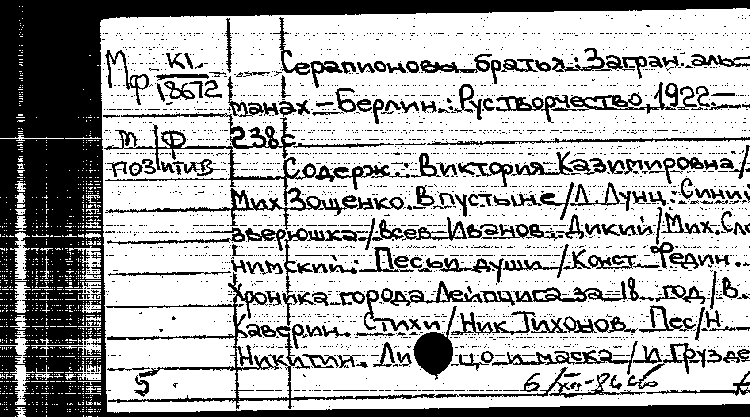 Мф К1 18672
т/ф
позитив
Серапионовы братья: Загран. аль-
манах.-Берлин.: Рус.творчество, 1922.-
238с.
Содерж.: Виктория Казимировна/
Мих Зощенко. В пустыне/Л Лунц. Синий
зверюшка/Всев Иванов. Дикий/Мих.Сло
нимский: Песьи души/Конст. Федин.
Хроника города Лейпцига за 18.. год/В.
Каверин. Стихи/Ник Тихонов. Пес/Н
Никитин. Лицо и маска/И Грузде
5